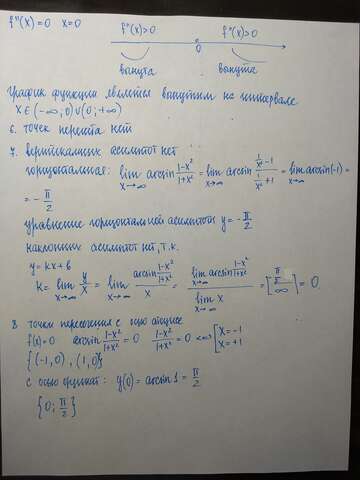 f''(x)=0 x=0 f''(x)>0 f''(x)>0
0
выпукла выпукла
График функции является выпуклым на интервале
x∈(-∞;0)∪(0;+∞)
6. точек перегиба нет
7. вертикальных асимптот нет
горизонтальная: lim x→∞ arcsin (1-x²)/(1+x²) = lim x→∞ arcsin (1/x² -1)/(1/x² +1) = lim x→∞ arcsin(-1) =
= - π/2
уравнение горизонтальной асимптоты y = - π/2
наклонных асимптот нет, т.к.
y = kx+b
k = lim x→∞ y/x = lim x→∞ (arcsin (1-x²)/(1+x²))/x = (lim x→∞ arcsin (1-x²)/(1+x²))/(lim x→∞ x) = [ ] = 0
8 точки пересечения с осью абсцисс
f(x)=0 arcsin (1-x²)/(1+x²) = 0 (1-x²)/(1+x²) = 0 <=> [x=-1 x=+1
{(-1,0), (1,0)}
с осью ординат: y(0) = arcsin 1 = π/2
{0; π/2}